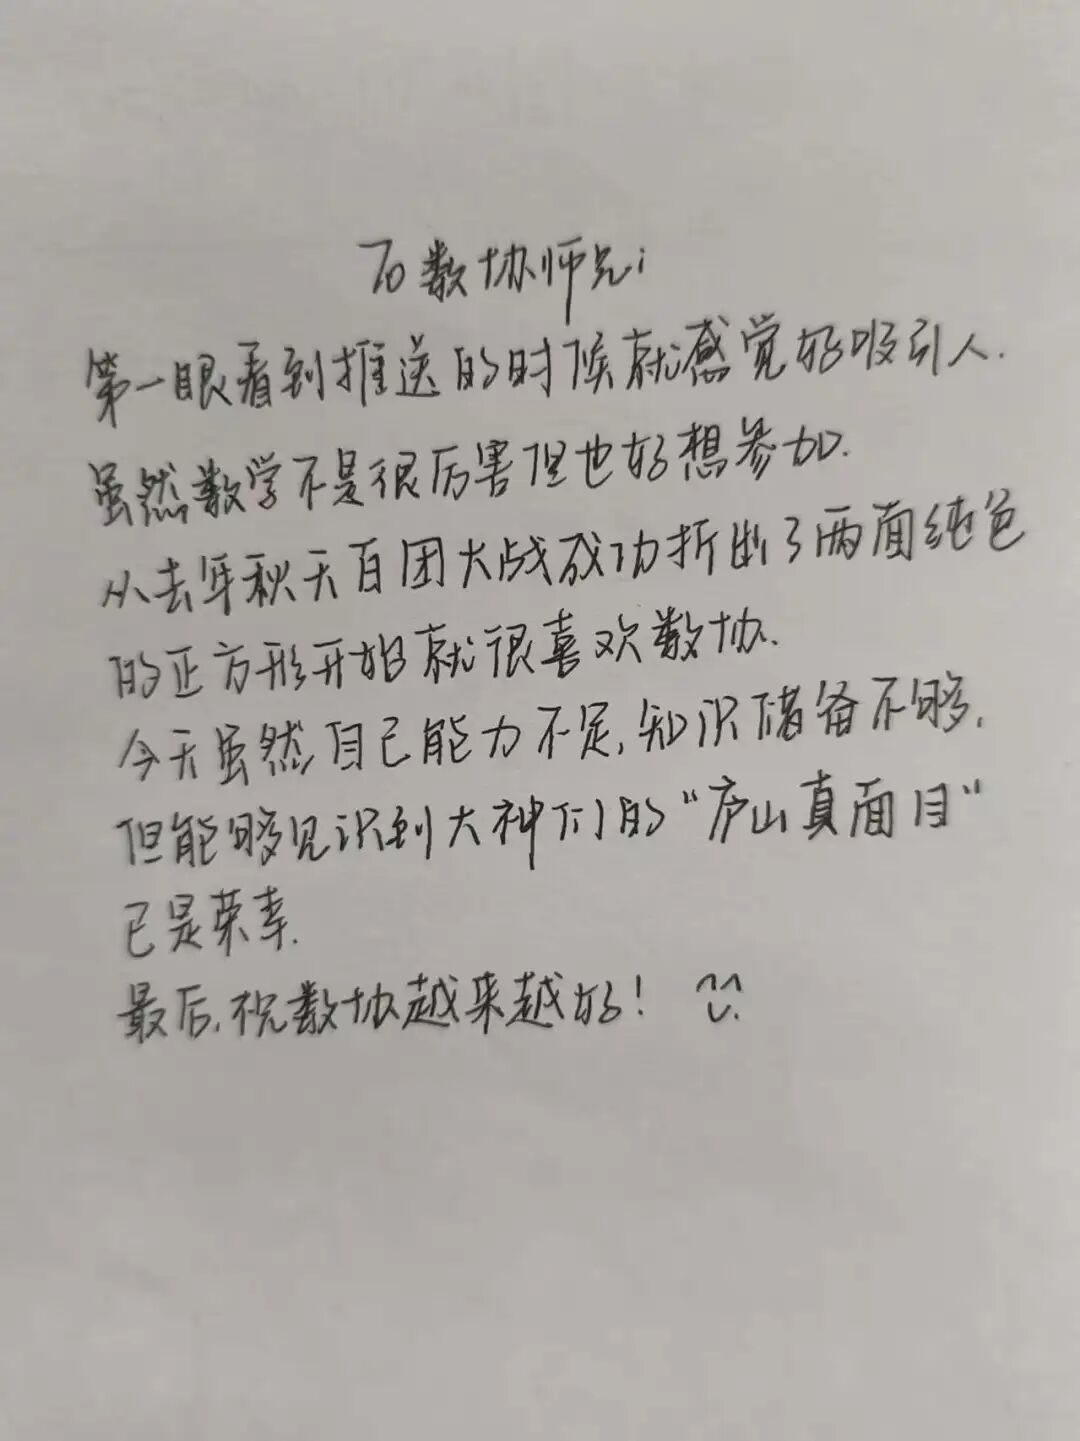 To 数协师兄:
第一眼看到推送的时候就感觉好吸引人.
虽然数学不是很厉害但也好想参加.
从去年秋天百团大战成功折出了两面纯色
的正方形开始就很喜欢数协.
今天虽然自己能力不足,知识储备不够,
但能够见识到大神们的“庐山真面目”
已是荣幸.
最后,祝数协越来越好!